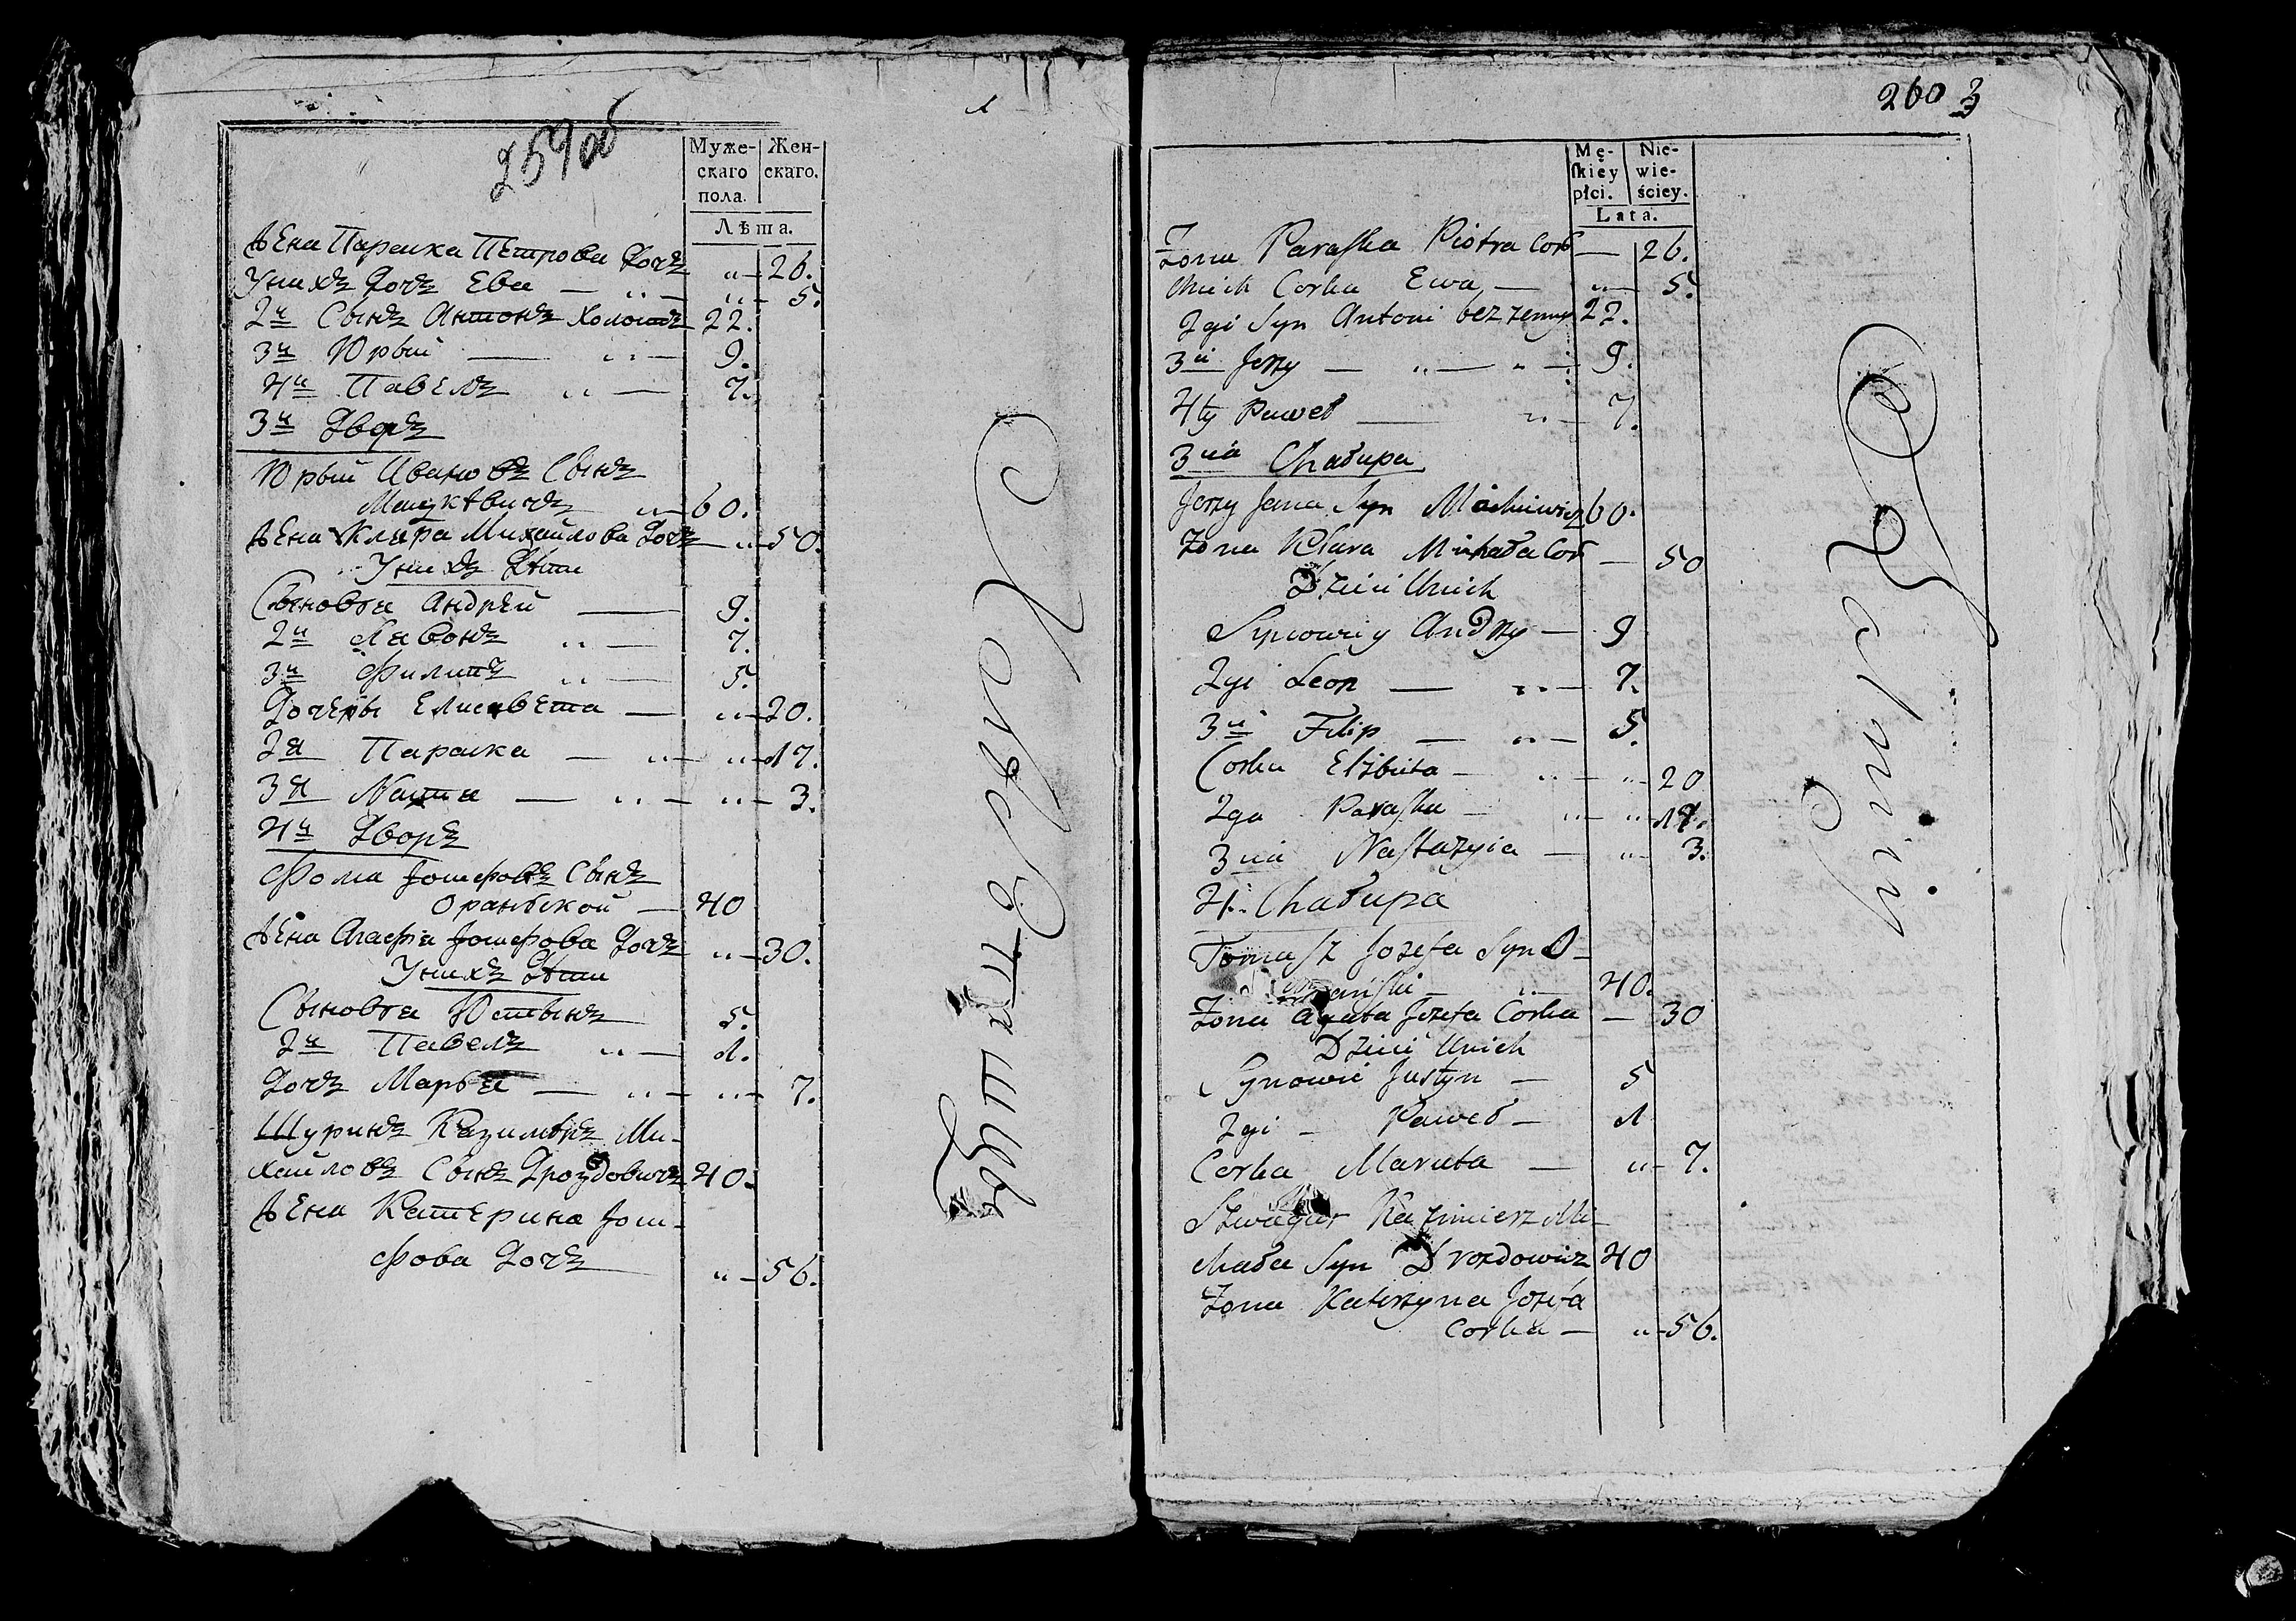 259 об
Муже-
скаго
пола.
Жен-
скаго.
Лѣта.
Жена Параска Петрова Дочъ " — 26.
У нихъ Дочъ Ева — " — 5.
2й Сынъ Антонъ Холостъ 22.
3й Юрый — " — 9.
4й Павелъ " — 7.
3й Дворъ
Юрый Ивановъ Сынъ
" — 60.
Жена Клара Михайлова Дочъ — " — 50.
У нихъ Дѣти
Сыновья Андрей — 9.
2й Лявонъ " — 7.
3й Филипъ " — 5.
Дочеры Елисавета — " — 20.
2я Параска — " — " — 17.
3я Настя — " — " — 3.
4й Дворъ
Фома Іосифовъ Сынъ
— 40
Жена Агафія Іосифова Дочъ " — 30.
У нихъ Дѣти
Сыновья Юстынъ 5.
2й Павелъ " — 1.
Дочъ Марья — " — " — 7.
Шуринъ Казимѣръ Ми-
хайловъ Сынъ Дроздовичъ 40.
Жена Катерина Іоси-
фова Дочъ " — 56.
260 3
Mę-
ſkiey
płci.
Nie-
wie-
ściey.
Lata.
Żona Paraska Piotra Cor — 26.
Unich Corka Ewa — " — 5.
2gi Syn Antoni bez żenny 22.
3ci Jerzy — " — " — 9.
4ty Paweł — " — 7.
3cia Chałupa
Jerzy Jana Syn 60.
Żona Klara Michała Cor — 50
Dzieci Unich
Synowiy Andrzy — 9
2gi Leon — " — 7.
3ci Filip — " — 5.
Corka Elżbieta — " — " — 20
2ga Paraska — " — " — 17.
3cia Nastazyia — " — 3.
4. Chałupa
Tomasz Jozefa Syn O-
— " — 40.
Żona Agata Jozefa Corka — 30
Dzieci Unich
Synowie Justyn — 5
2gi — Paweł — 1
Corka Maruta — " — 7.
Szwagier Kazimierz Mi-
chała Syn Drozdowicz 40
Żona Katerzyna Jozefa
Corka — " — 56.